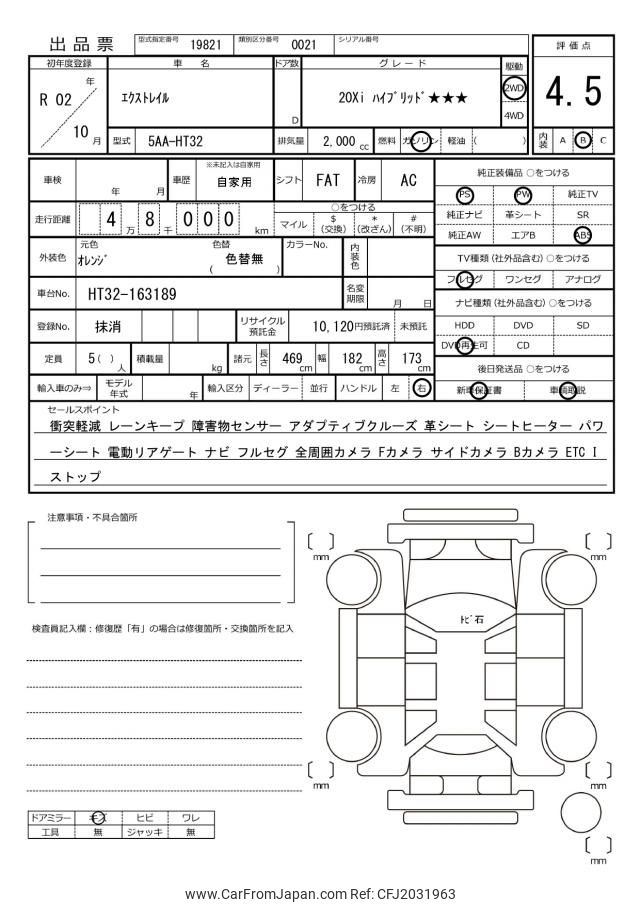 出品票 型式指定番号 19821 類別区分番号 0021 シリアル番号
評価点
4.5
内装 A B C
初年度登録 車名 ドア数 グレード 駆動
R 02 年 10 月
エクストレイル D 20Xi ハイブリッド★★★
2WD
4WD
型式 5AA-HT32 排気量 2,000 cc 燃料 ガソリン 軽油 ( )
車検 年 月 車歴 ※未記入は自家用 自家用 シフト FAT 冷房 AC
走行距離 4 万 8 千 0 0 0 km
○をつける
マイル $(交換) *(改ざん) #(不明)
外装色 元色 オレンジ 色替 ( 色替無 ) カラーNo. 内装色
車台No. HT32-163189 名変期限 月 日
登録No. 抹消 リサイクル預託金 10,120円預託済 未預託
定員 5( )人 積載量 kg 諸元 長さ 469cm 幅 182cm 高さ 173cm
輸入車のみ⇒ モデル年式 年 輸入区分 ディーラー 並行 ハンドル 左 右
純正装備品 ○をつける
PS PW 純正TV
純正ナビ 革シート SR
純正AW エアB ABS
TV種類(社外品含む) ○をつける
フルセグ ワンセグ アナログ
ナビ種類(社外品含む) ○をつける
HDD DVD SD
DVD再生可 CD
後日発送品 ○をつける
新車保証書 車輌取説
セールスポイント
衝突軽減 レーンキープ 障害物センサー アダプティブクルーズ 革シート シートヒーター パワ
ーシート 電動リアゲート ナビ フルセグ 全周囲カメラ Fカメラ サイドカメラ Bカメラ ETC I
ストップ
注意事項・不具合箇所
検査員記入欄:修復歴「有」の場合は修復箇所・交換箇所を記入
mm
mm
トビ石
mm
mm
mm
ドアミラー キズ ヒビ ワレ
工具 無 ジャッキ 無
www.CarFromJapan.com Ref: CFJ2031963